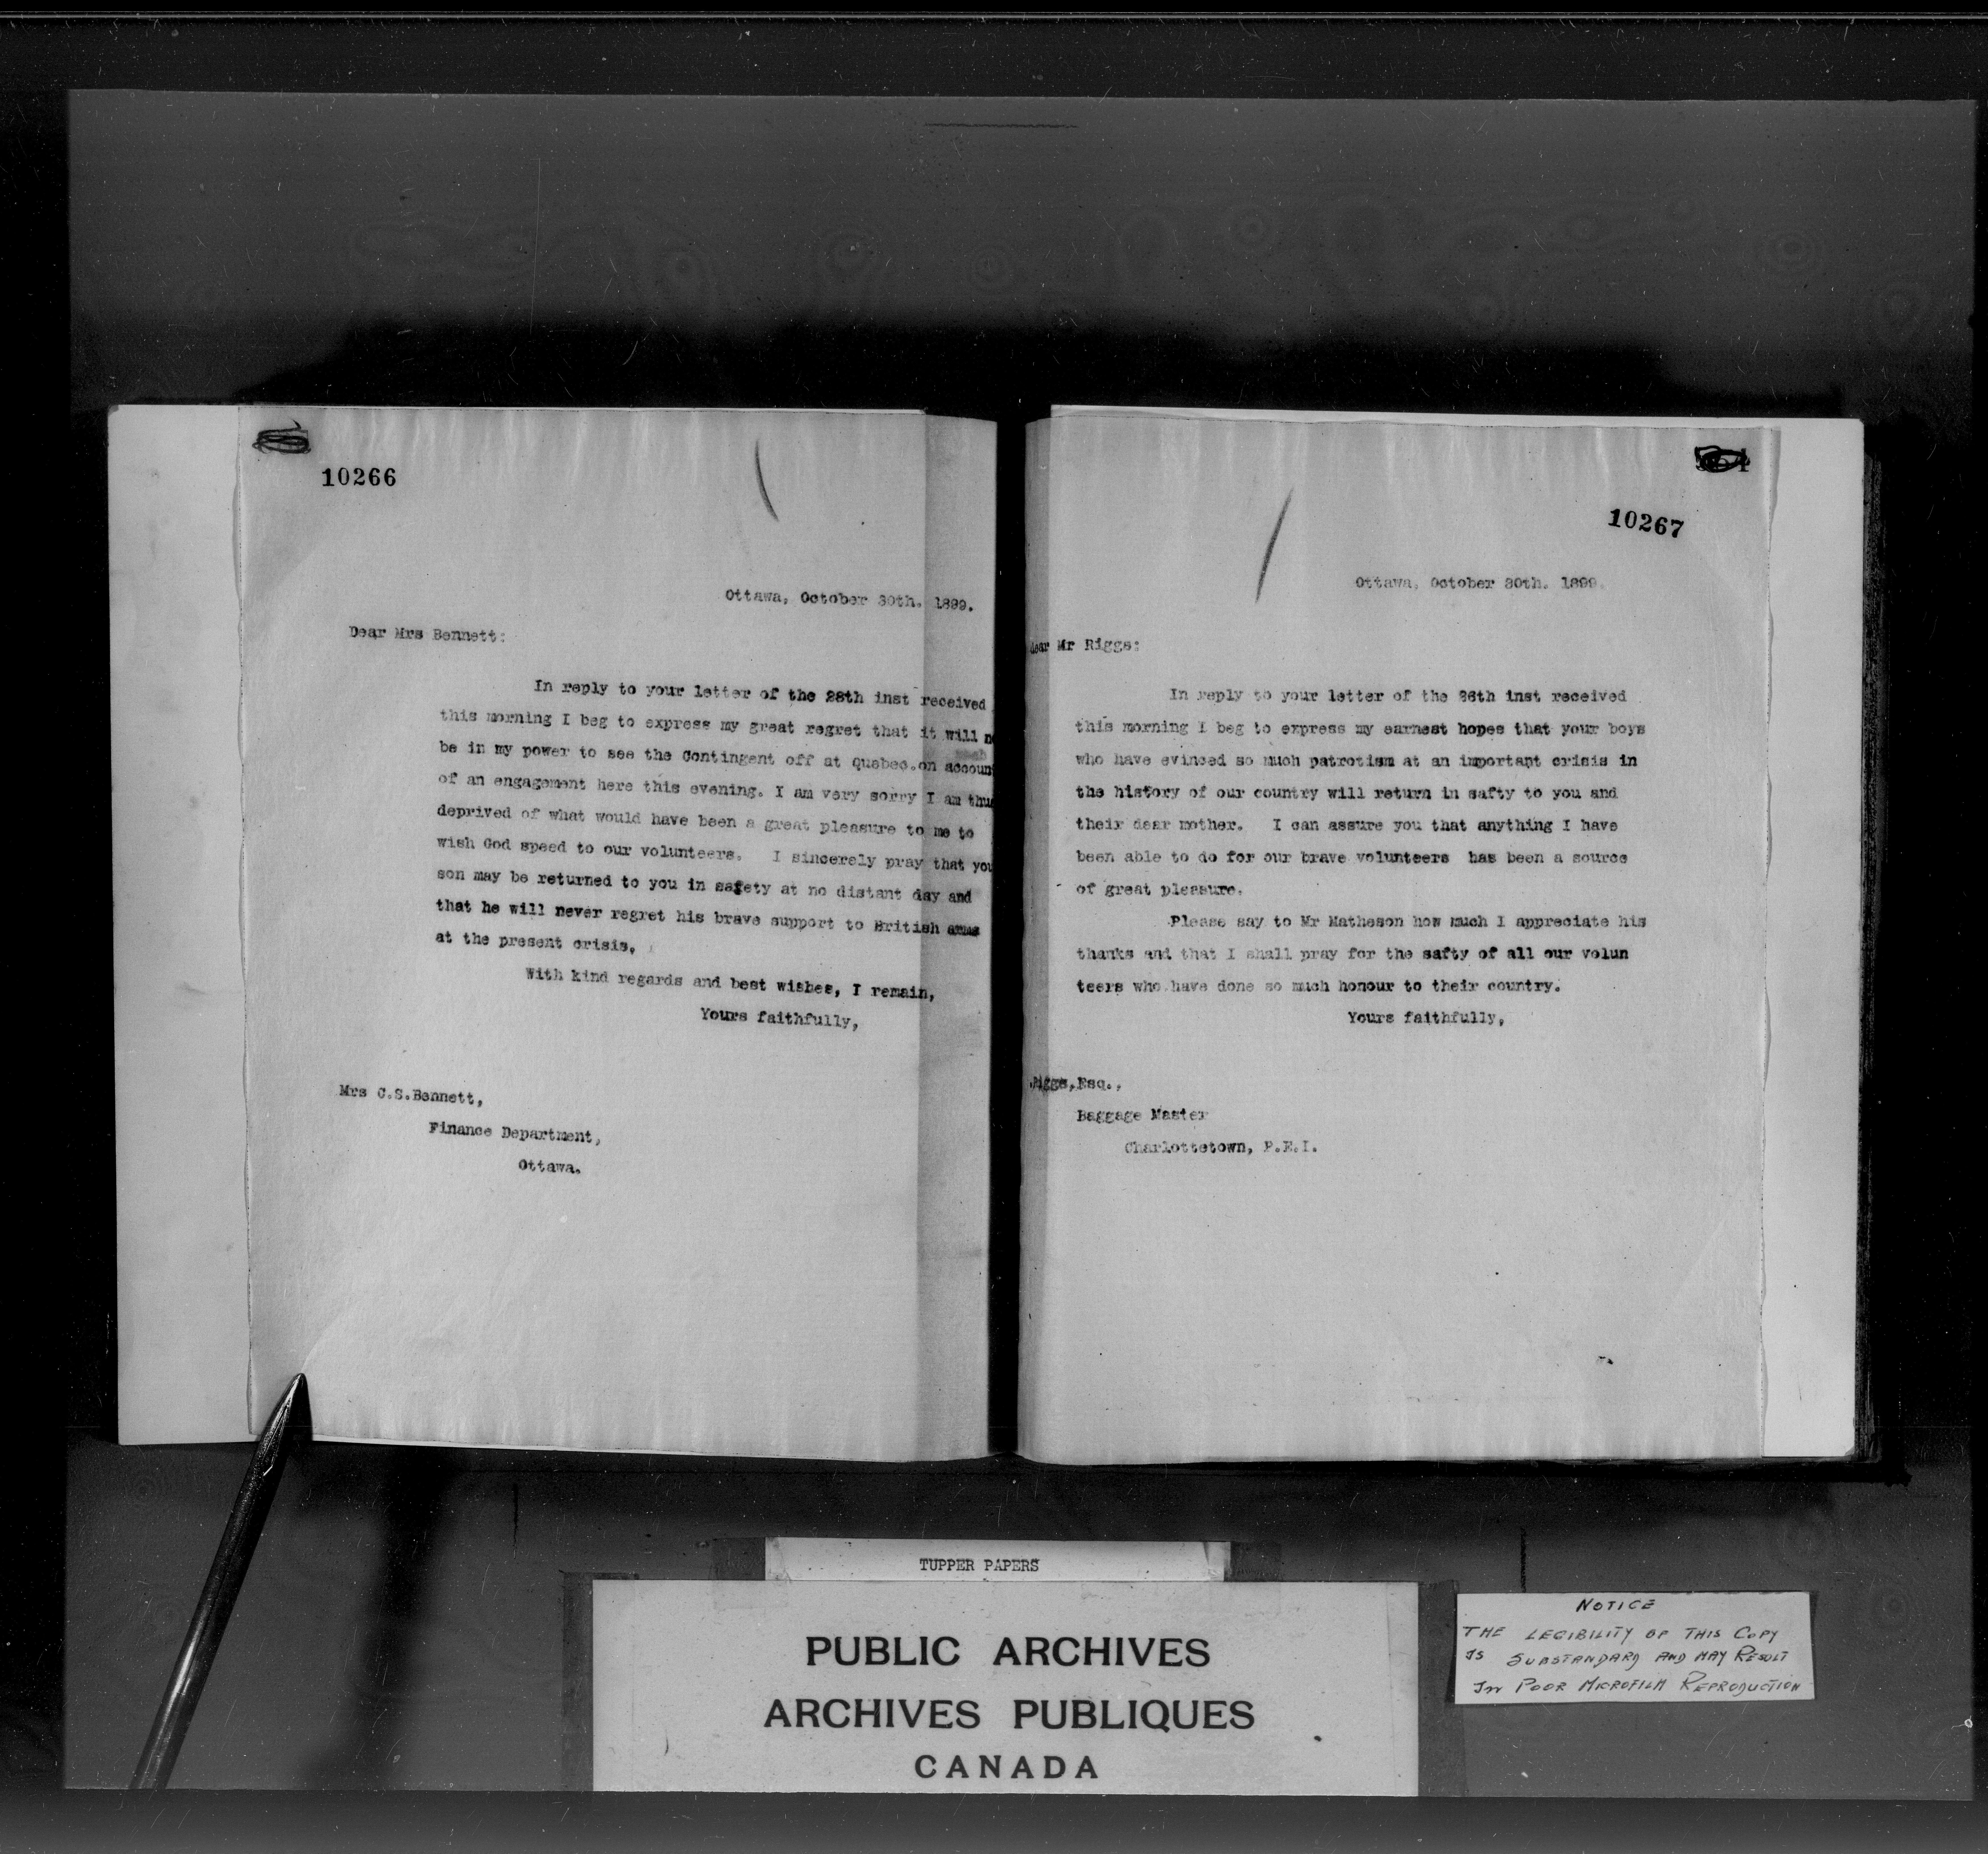 10266
Ottawa, October 30th. 1899.
Dear Mrs Bennett:
In reply to your letter of the 28th inst received
this morning I beg to express my great regret that it will
be in my power to see the Contingent off at Quebec.on accoun
of an engagement here this evening. I am very sorry I am thus
deprived of what would have been a great pleasure to me to
wish God speed to our volunteers. I sincerely pray that you
son may be returned to you in safety at no distant day and
that he will never regret his brave support to British arms
at the present crisis,
With kind regards and best wishes, I remain,
Yours faithfully,
Mrs C.S.Bennett,
Finance Department,
Ottawa.
10267
Ottawa, October 30th. 1899.
Dear Mr Riggs:
In reply to your letter of the 26th inst received
this morning I beg to express my earnest hopes that your boys
who have evinced so much patrotism at an important crisis in
the history of our country will return in safty to you and
their dear mother. I can assure you that anything I have
been able to do for our brave volunteers has been a source
of great pleasure.
Please say to Mr Matheson how much I appreciate his
thanks and that I shall pray for the safty of all our volun
teers who have done so much honour to their country.
Yours faithfully,
Riggs,Esq.,
Baggage Master
Charlottetown, P.E.I.
TUPPER PAPERS
PUBLIC ARCHIVES
ARCHIVES PUBLIQUES
CANADA
NOTICE
THE LEGIBILITY OF THIS COPY
IS SUBSTANDARD AND MAY RESULT
IN POOR MICROFILM REPRODUCTION